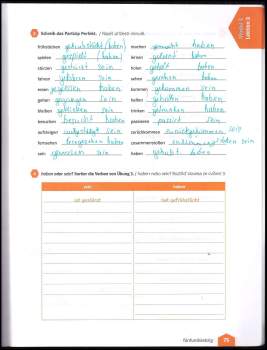 Lektion 3
3 Schreib das Partizip Perfekt. / Napiš příčestí minulé.
frühstücken gefrühstückt (haben)
spielen gespielt (haben)
stürzen gestürzt sein
fahren gefahren sein
essen gegessen haben
gehen gegangen sein
bleiben geblieben sein
besuchen besucht haben
aufsteigen aufgestiegt sein
fernsehen ferngesehen haben
sein gewesen sein
machen gemacht haben
lernen gelernt haben
holen geholt haben
sehen gesehen haben
kommen gekommen sein
helfen geholfen haben
trinken getrunken haben
passieren passiert sein
zurückkommen zurückgekommen sein
zusammenstoßen sein
haben gehabt haben
4 haben oder sein? Sortier die Verben von Übung 3. / haben nebo sein? Roztřiď slovesa ze cvičení 3.
sein haben
ist gestürzt hat gefrühstückt
fünfundsiebzig 75